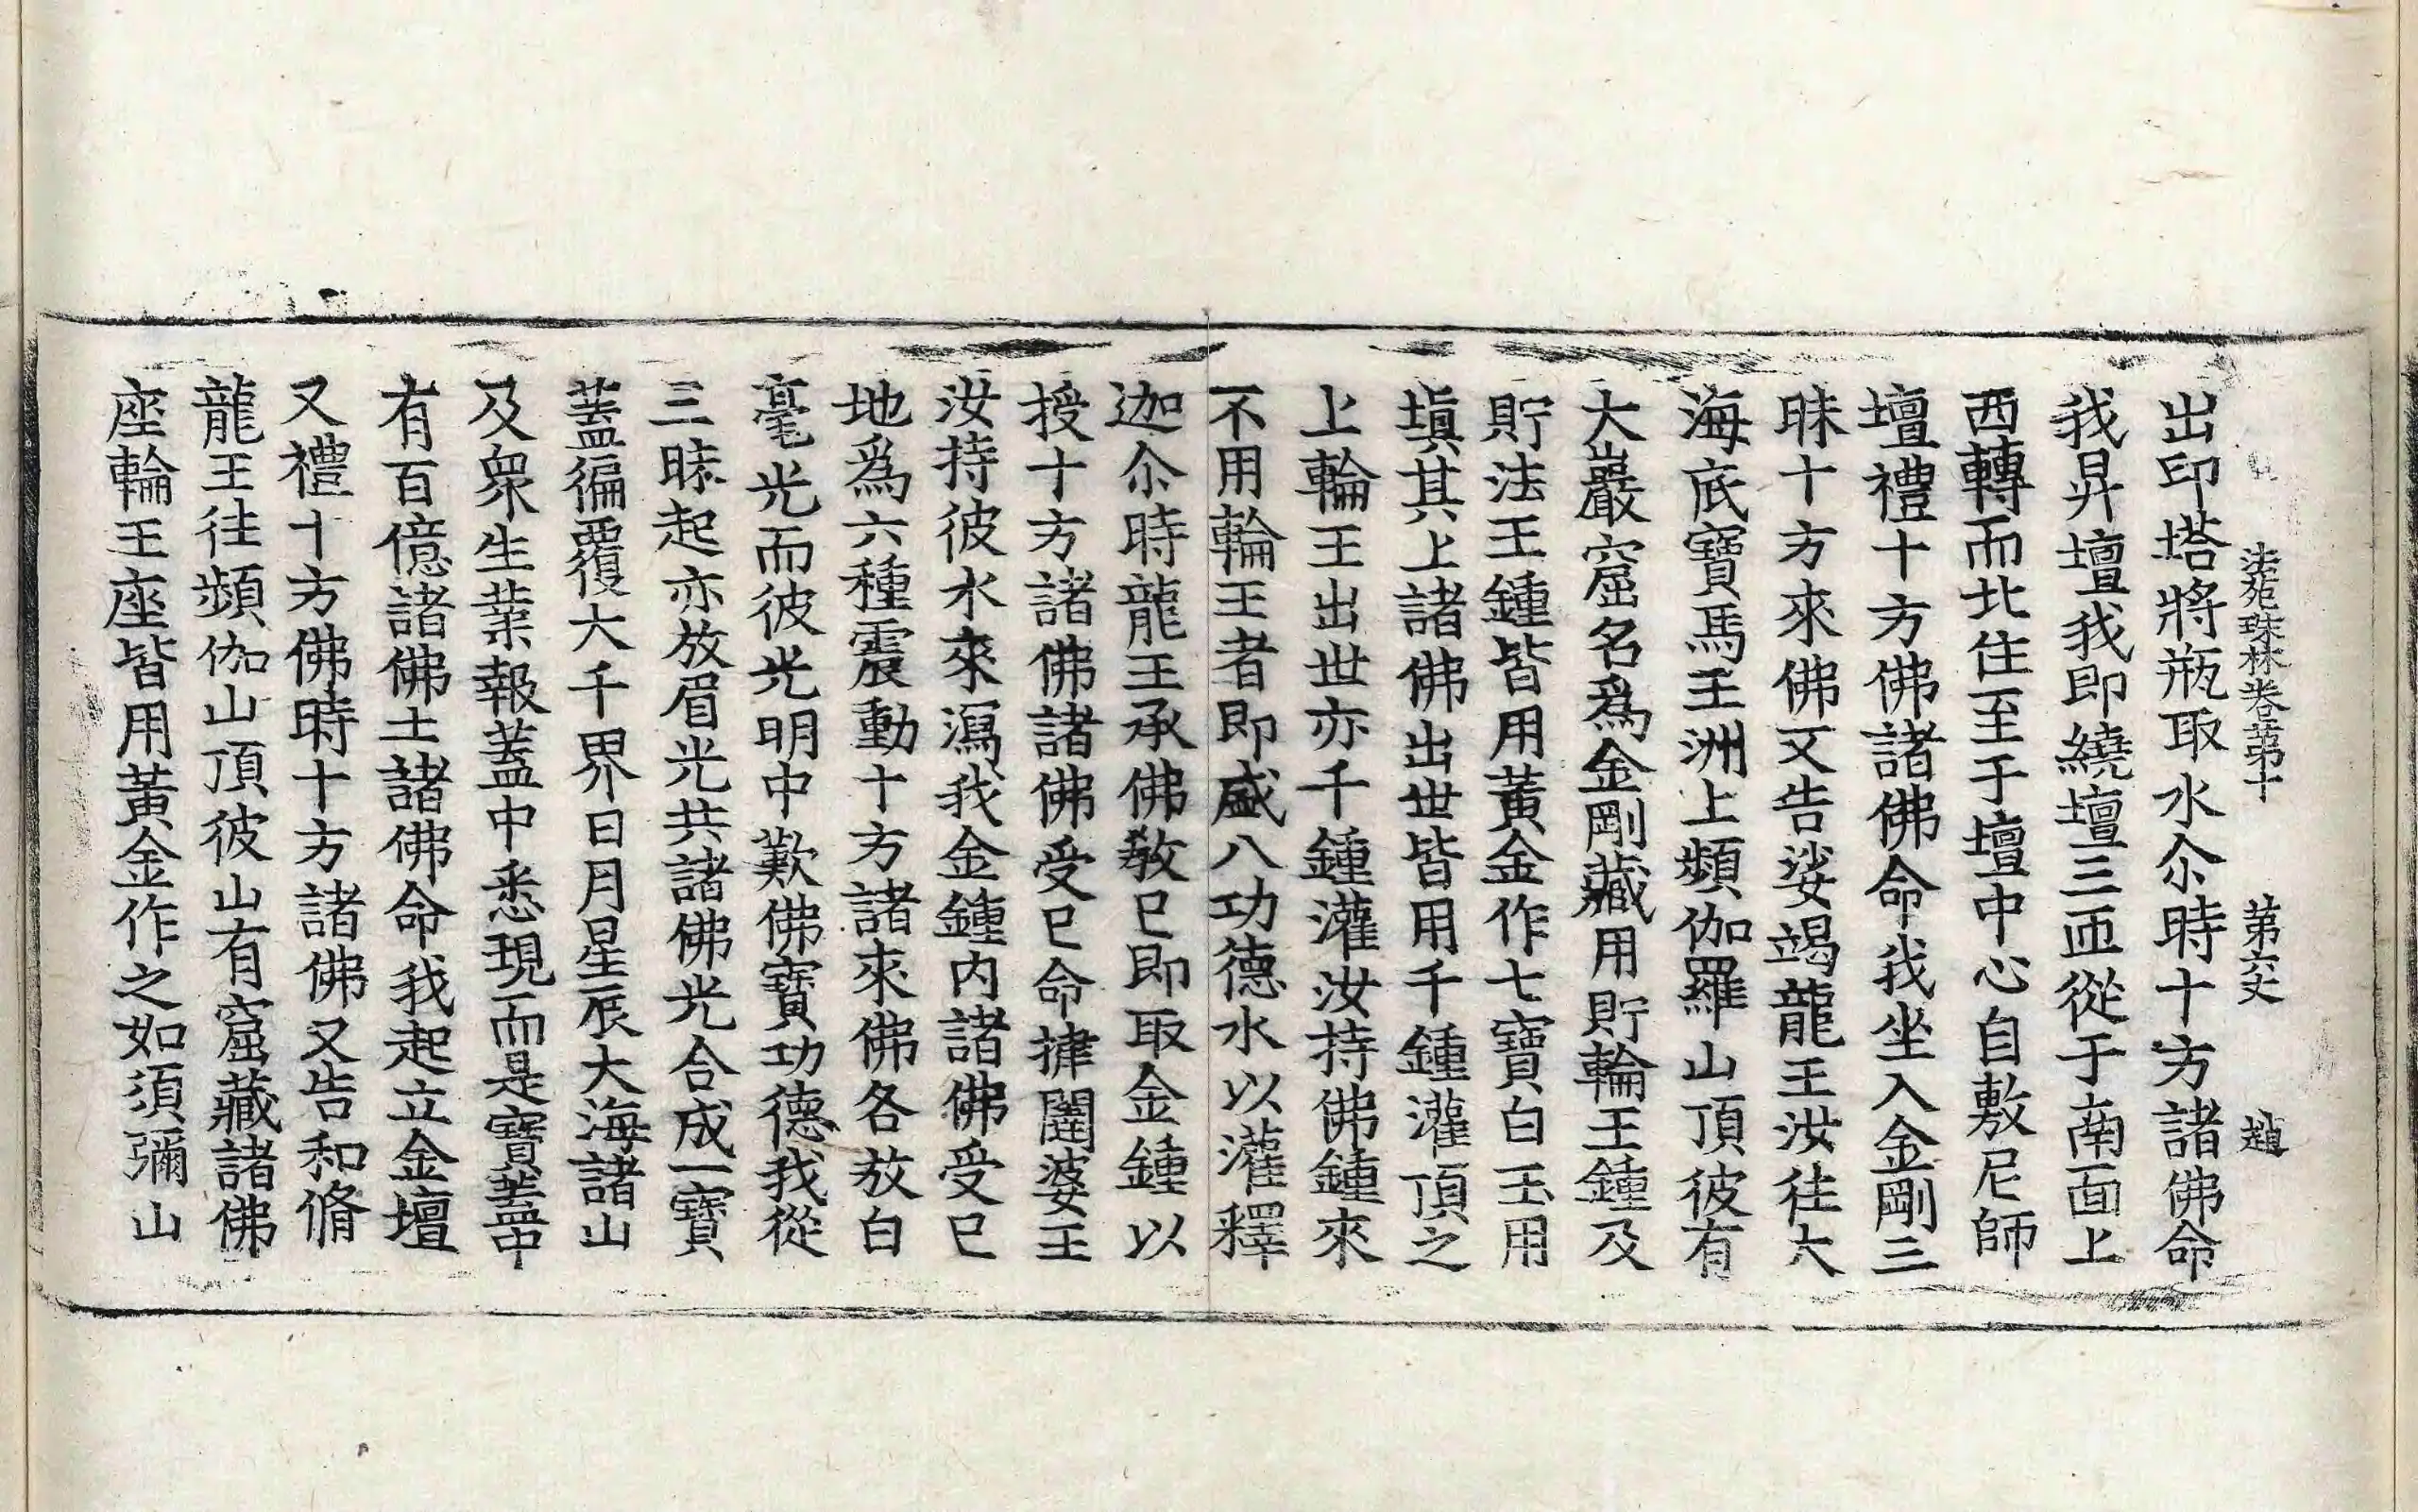 法苑珠林卷第十 第六丈 趙
出印塔將瓶取水尒時十方諸佛命
我昇壇我即繞壇三匝從于南面上
西轉而北住至于壇中心自敷尼師
壇禮十方佛諸佛命我坐入金剛三
昧十方來佛又告娑竭龍王汝往大
海底寶馬王洲上頻伽羅山頂彼有
大巖窟名爲金剛藏用貯輪王鍾及
貯法王鍾皆用黃金作七寶白玉用
填其上諸佛出世皆用千鍾灌頂之
上輪王出世亦千鍾灌汝持佛鍾來
不用輪王者即盛八功德水以灌釋
迦尒時龍王承佛教已即取金鍾以
授十方諸佛諸佛受已命揵闥婆王
汝持彼水來瀉我金鍾內諸佛受已
地爲六種震動十方諸來佛各放白
毫光而彼光明中歎佛寶功德我從
三昧起亦放眉光共諸佛光合成一寶
蓋徧覆大千界日月星辰大海諸山
及衆生業報蓋中悉現而是寶蓋中
有百億諸佛土諸佛命我起立金壇
又禮十方佛時十方諸佛又告和脩
龍王往頻伽山頂彼山有窟藏諸佛
座輪王座皆用黃金作之如須彌山